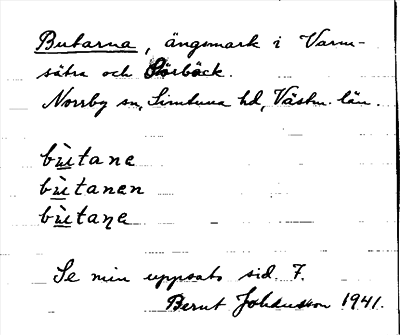 Butarna, ängsmark i Varm-
sätra och Sörbäck.
Norrby sn, Simtuna hd, Västm. län.
bù̲tane
bù̲tanen
bù̲taņe
Se min uppsats sid. 7.
Bernt Johansson 1941.